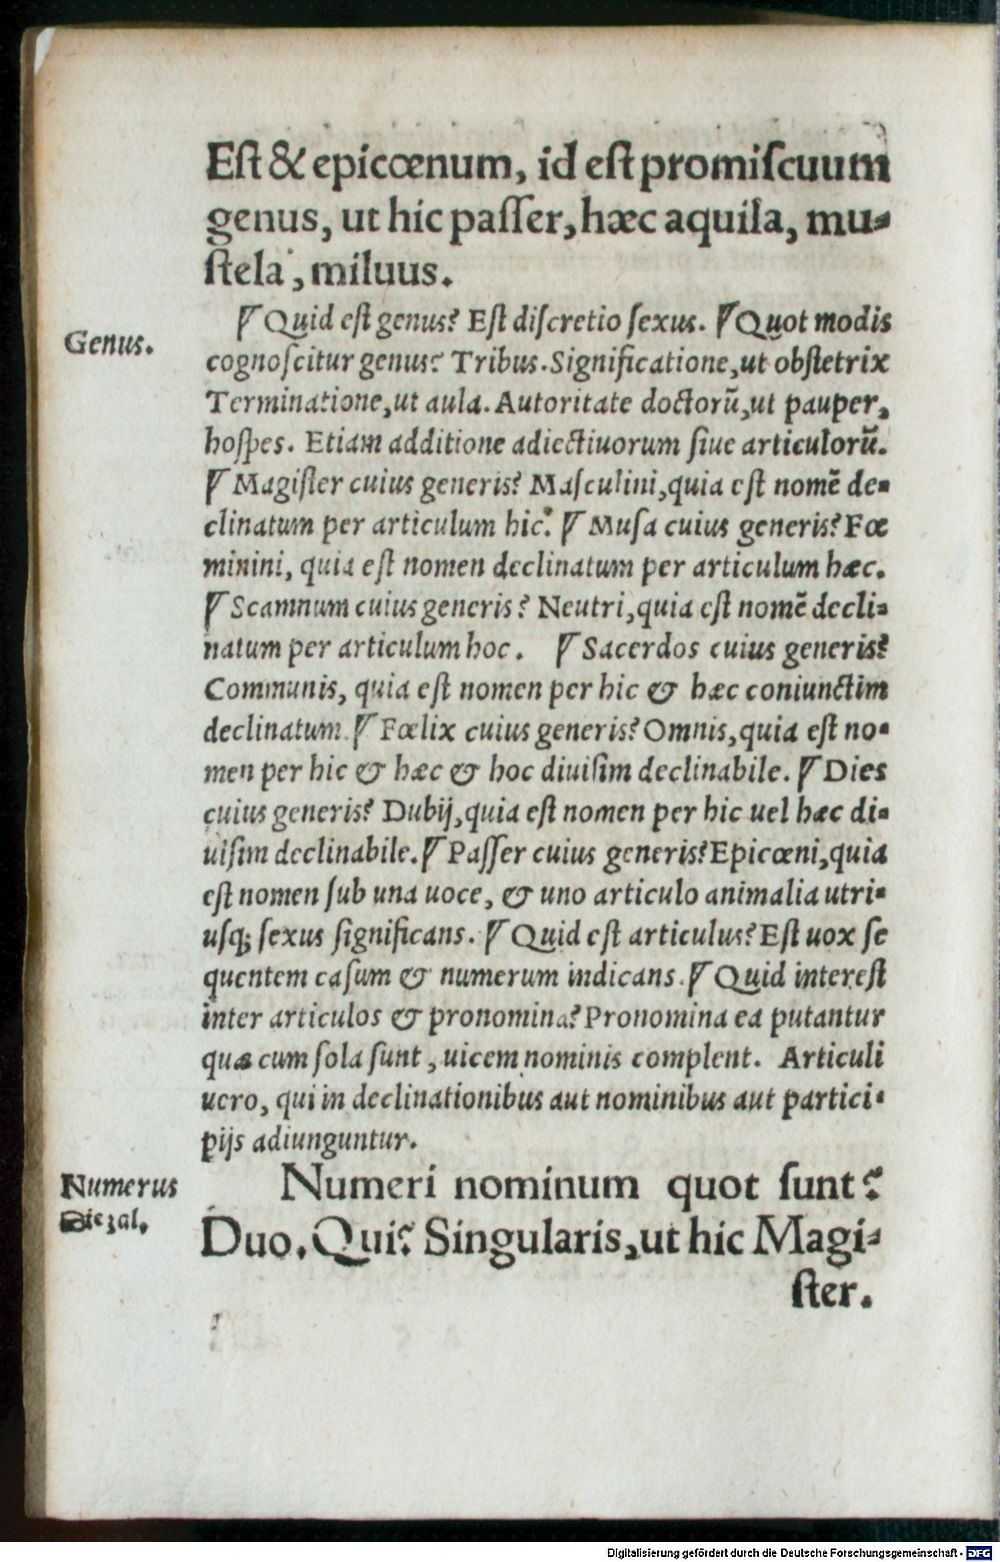 Est & epicœnum, id est promiſcuum
genus, ut hic paſſer, hæc aquila, mu-
ſtela, miluus.
Genus.
¶ Quid eſt genus? Eſt diſcretio ſexus. ¶ Quot modis
cognoſcitur genus? Tribus. Significatione, ut obſtetrix
Terminatione, ut aula. Autoritate doctorũ, ut pauper,
hoſpes. Etiam additione adiectiuorum ſiue articulorũ.
¶ Magiſter cuius generis? Maſculini, quia eſt nomẽ de-
clinatum per articulum hic. ¶ Muſa cuius generis? Fœ
minini, quia eſt nomen declinatum per articulum hæc.
¶ Scamnum cuius generis? Neutri, quia eſt nomẽ decli-
natum per articulum hoc. ¶ Sacerdos cuius generis?
Communis, quia eſt nomen per hic & hæc coniunctim
declinatum. ¶ Fœlix cuius generis? Omnis, quia eſt no-
men per hic & hæc & hoc diuiſim declinabile. ¶ Dies
cuius generis? Dubij, quia eſt nomen per hic uel hæc di-
uiſim declinabile. ¶ Paſſer cuius generis? Epicœni, quia
eſt nomen ſub una uoce, & uno articulo animalia utri-
uſq; ſexus ſignificans. ¶ Quid eſt articulus? Eſt uox ſe
quentem caſum & numerum indicans. ¶ Quid intereſt
inter articulos & pronomina? Pronomina ea putantur
quæ cum ſola ſunt, uicem nominis complent. Articuli
uero, qui in declinationibus aut nominibus aut partici-
pijs adiunguntur.
Numerus
Die zal.
Numeri nominum quot ſunt?
Duo. Qui? Singularis, ut hic Magi-
ſter.
Digitalisierung gefördert durch die Deutsche Forschungsgemeinschaft - DFG